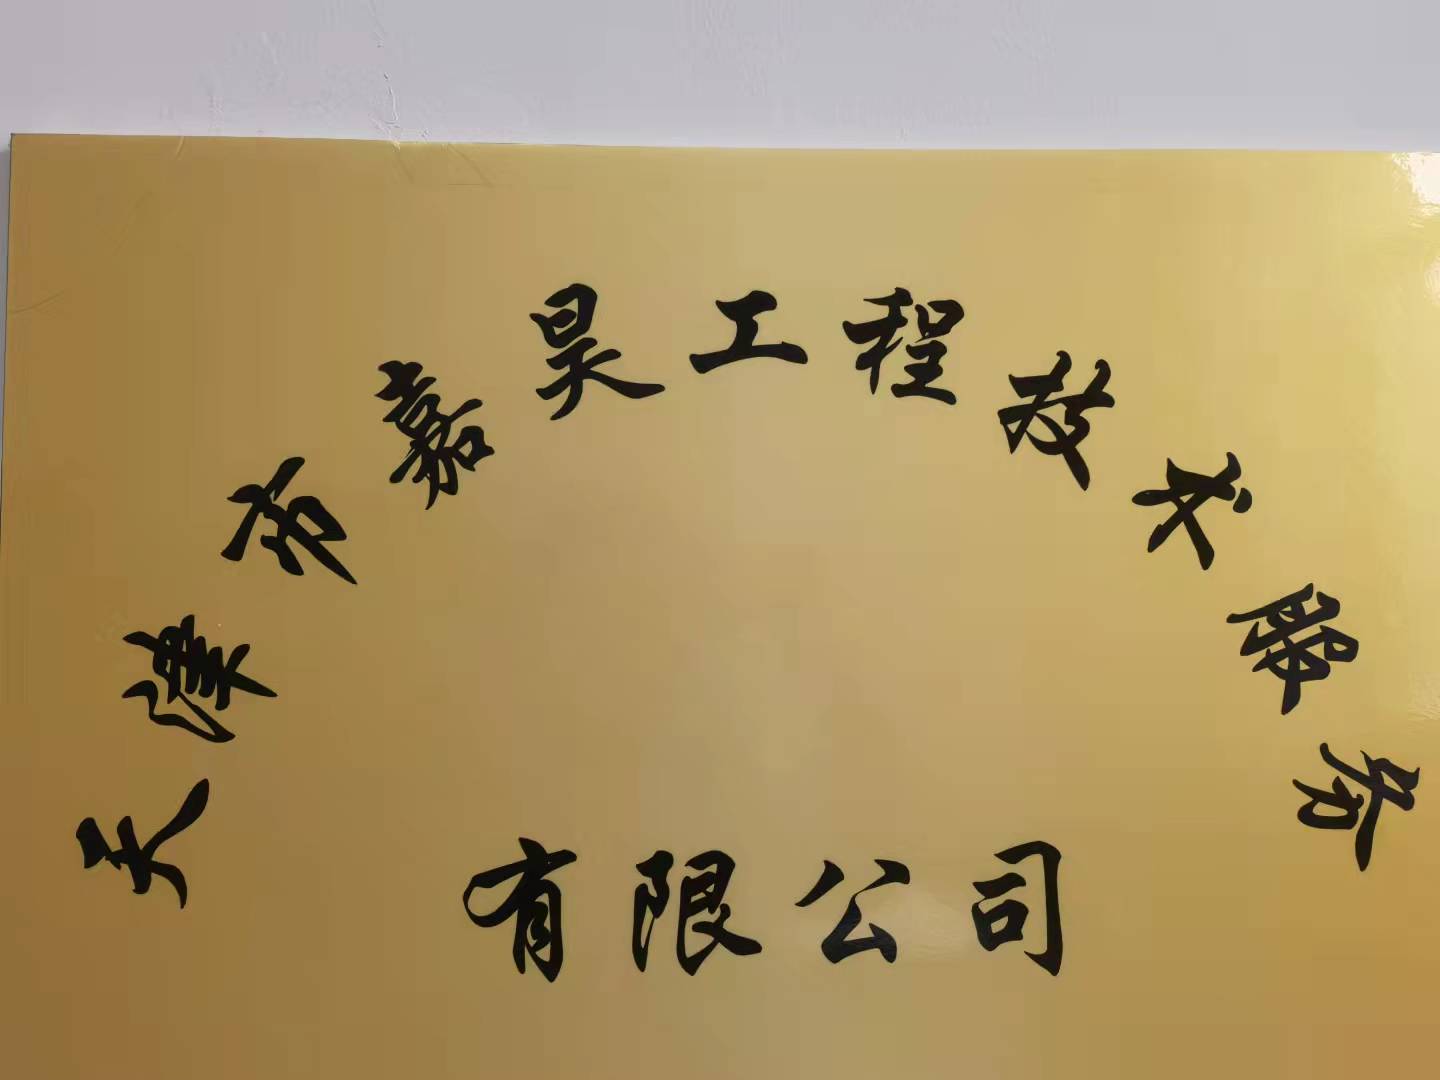 天津市嘉昊工程技术服务
有限公司